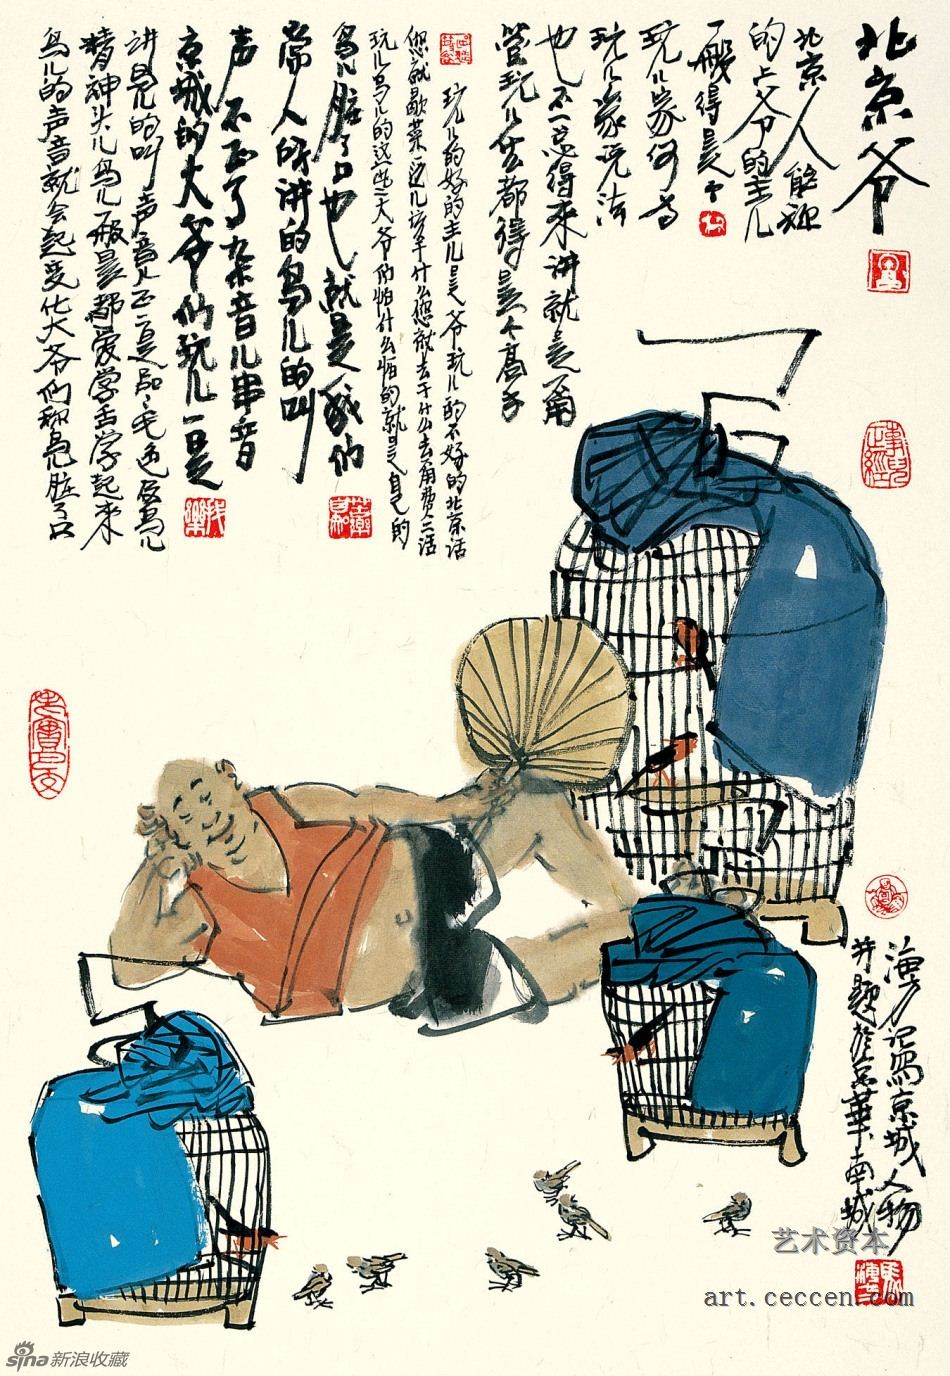 北京爷
北京人能称
的上爷的主儿
一般得是个
玩儿家何为
玩儿家说法
也不一总得来讲就是一角
管玩儿什么都得是个高手
玩儿的好的主儿是爷玩儿的不好的北京话
您就歇菜边儿该干什么您就去干什么去甭费二话
玩儿鸟儿的这些大爷们怕什么怕的就是自己的
鸟儿脏了口也就是我们
常人所讲的鸟儿的叫
声不正了杂音儿串音
京城的大爷们玩儿一是
讲鸟儿的叫声音儿正二是品毛色及鸟儿
精神头儿鸟儿一般是都爱学舌学起来
鸟儿的声音就会起变化大爷们称鸟儿脏了口
海方记写京城人物
并题于京华南城
艺术资本
art.ceccen.com
sina新浪收藏